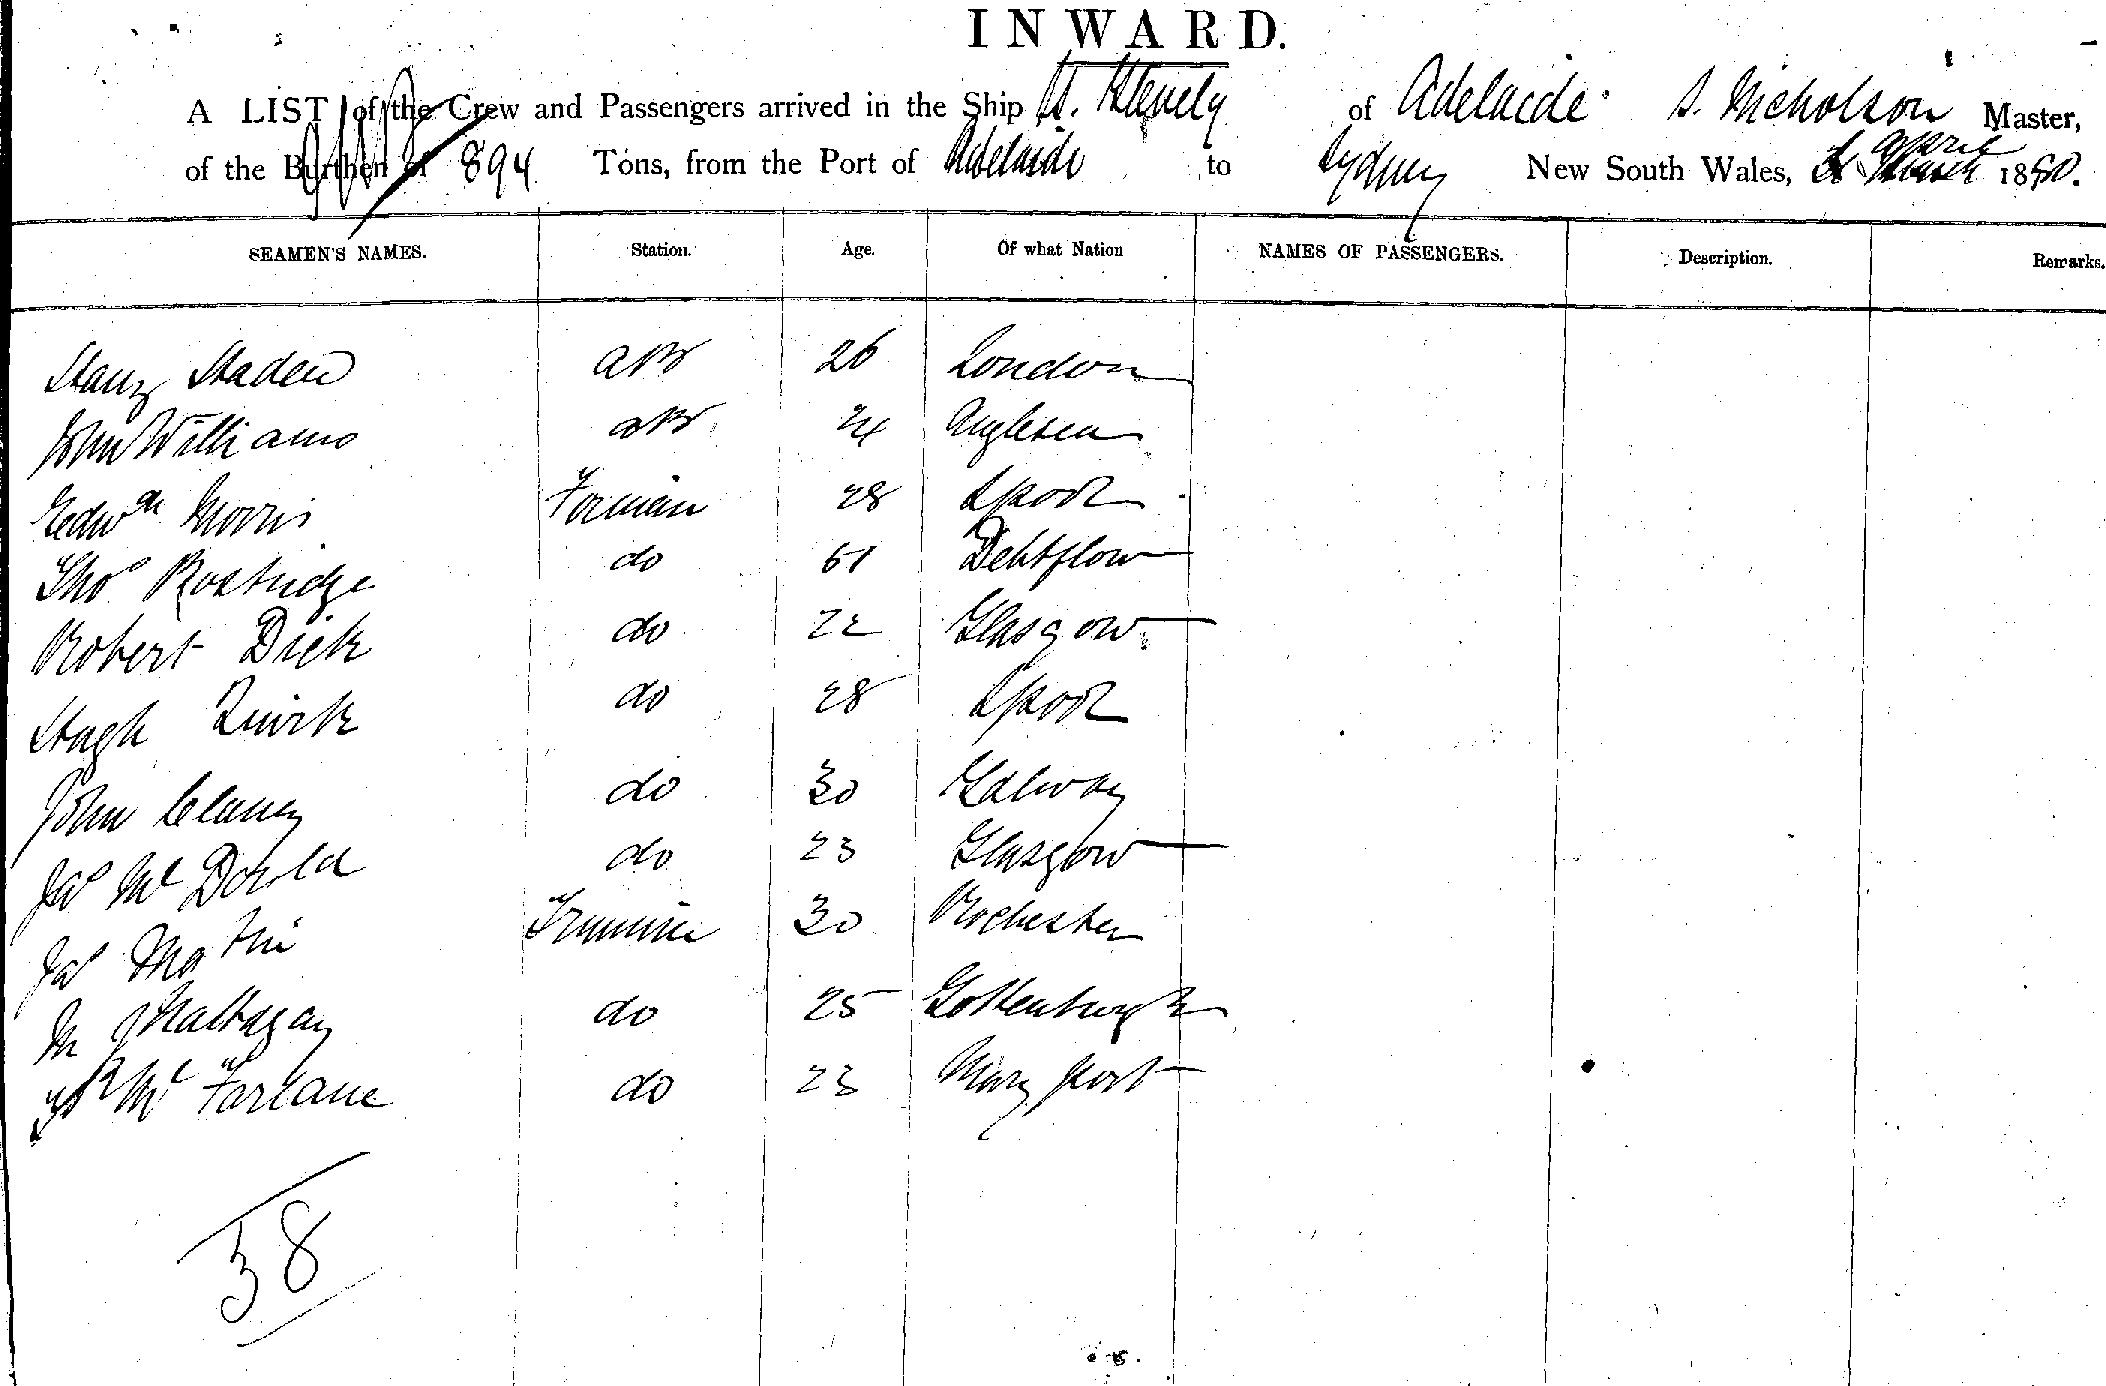 INWARD.
A LIST of the Crew and Passengers arrived in the Ship of Adelaide S. Nicholson Master,
of the Burthen of 894 Tons, from the Port of Adelaide to Sydney New South Wales, April 1880.
SEAMEN'S NAMES. Station. Age. Of what Nation NAMES OF PASSENGERS. Description. Remarks.
Staden AB 26 London
John Williams AB 24 Anglesea
Edwd Morris Forman 28 Lpool
Thos do 61
Robert Dick do 22 Glasgow
Hugh Quirk do 28 Lpool
John Clancy do 30 Galway
Jas Mc Donld do 23 Glasgow
Jas Matin Trimmer 30 Rochester
M do 25 Gottenburgh
Mc Farlane do 23 Mary port
38